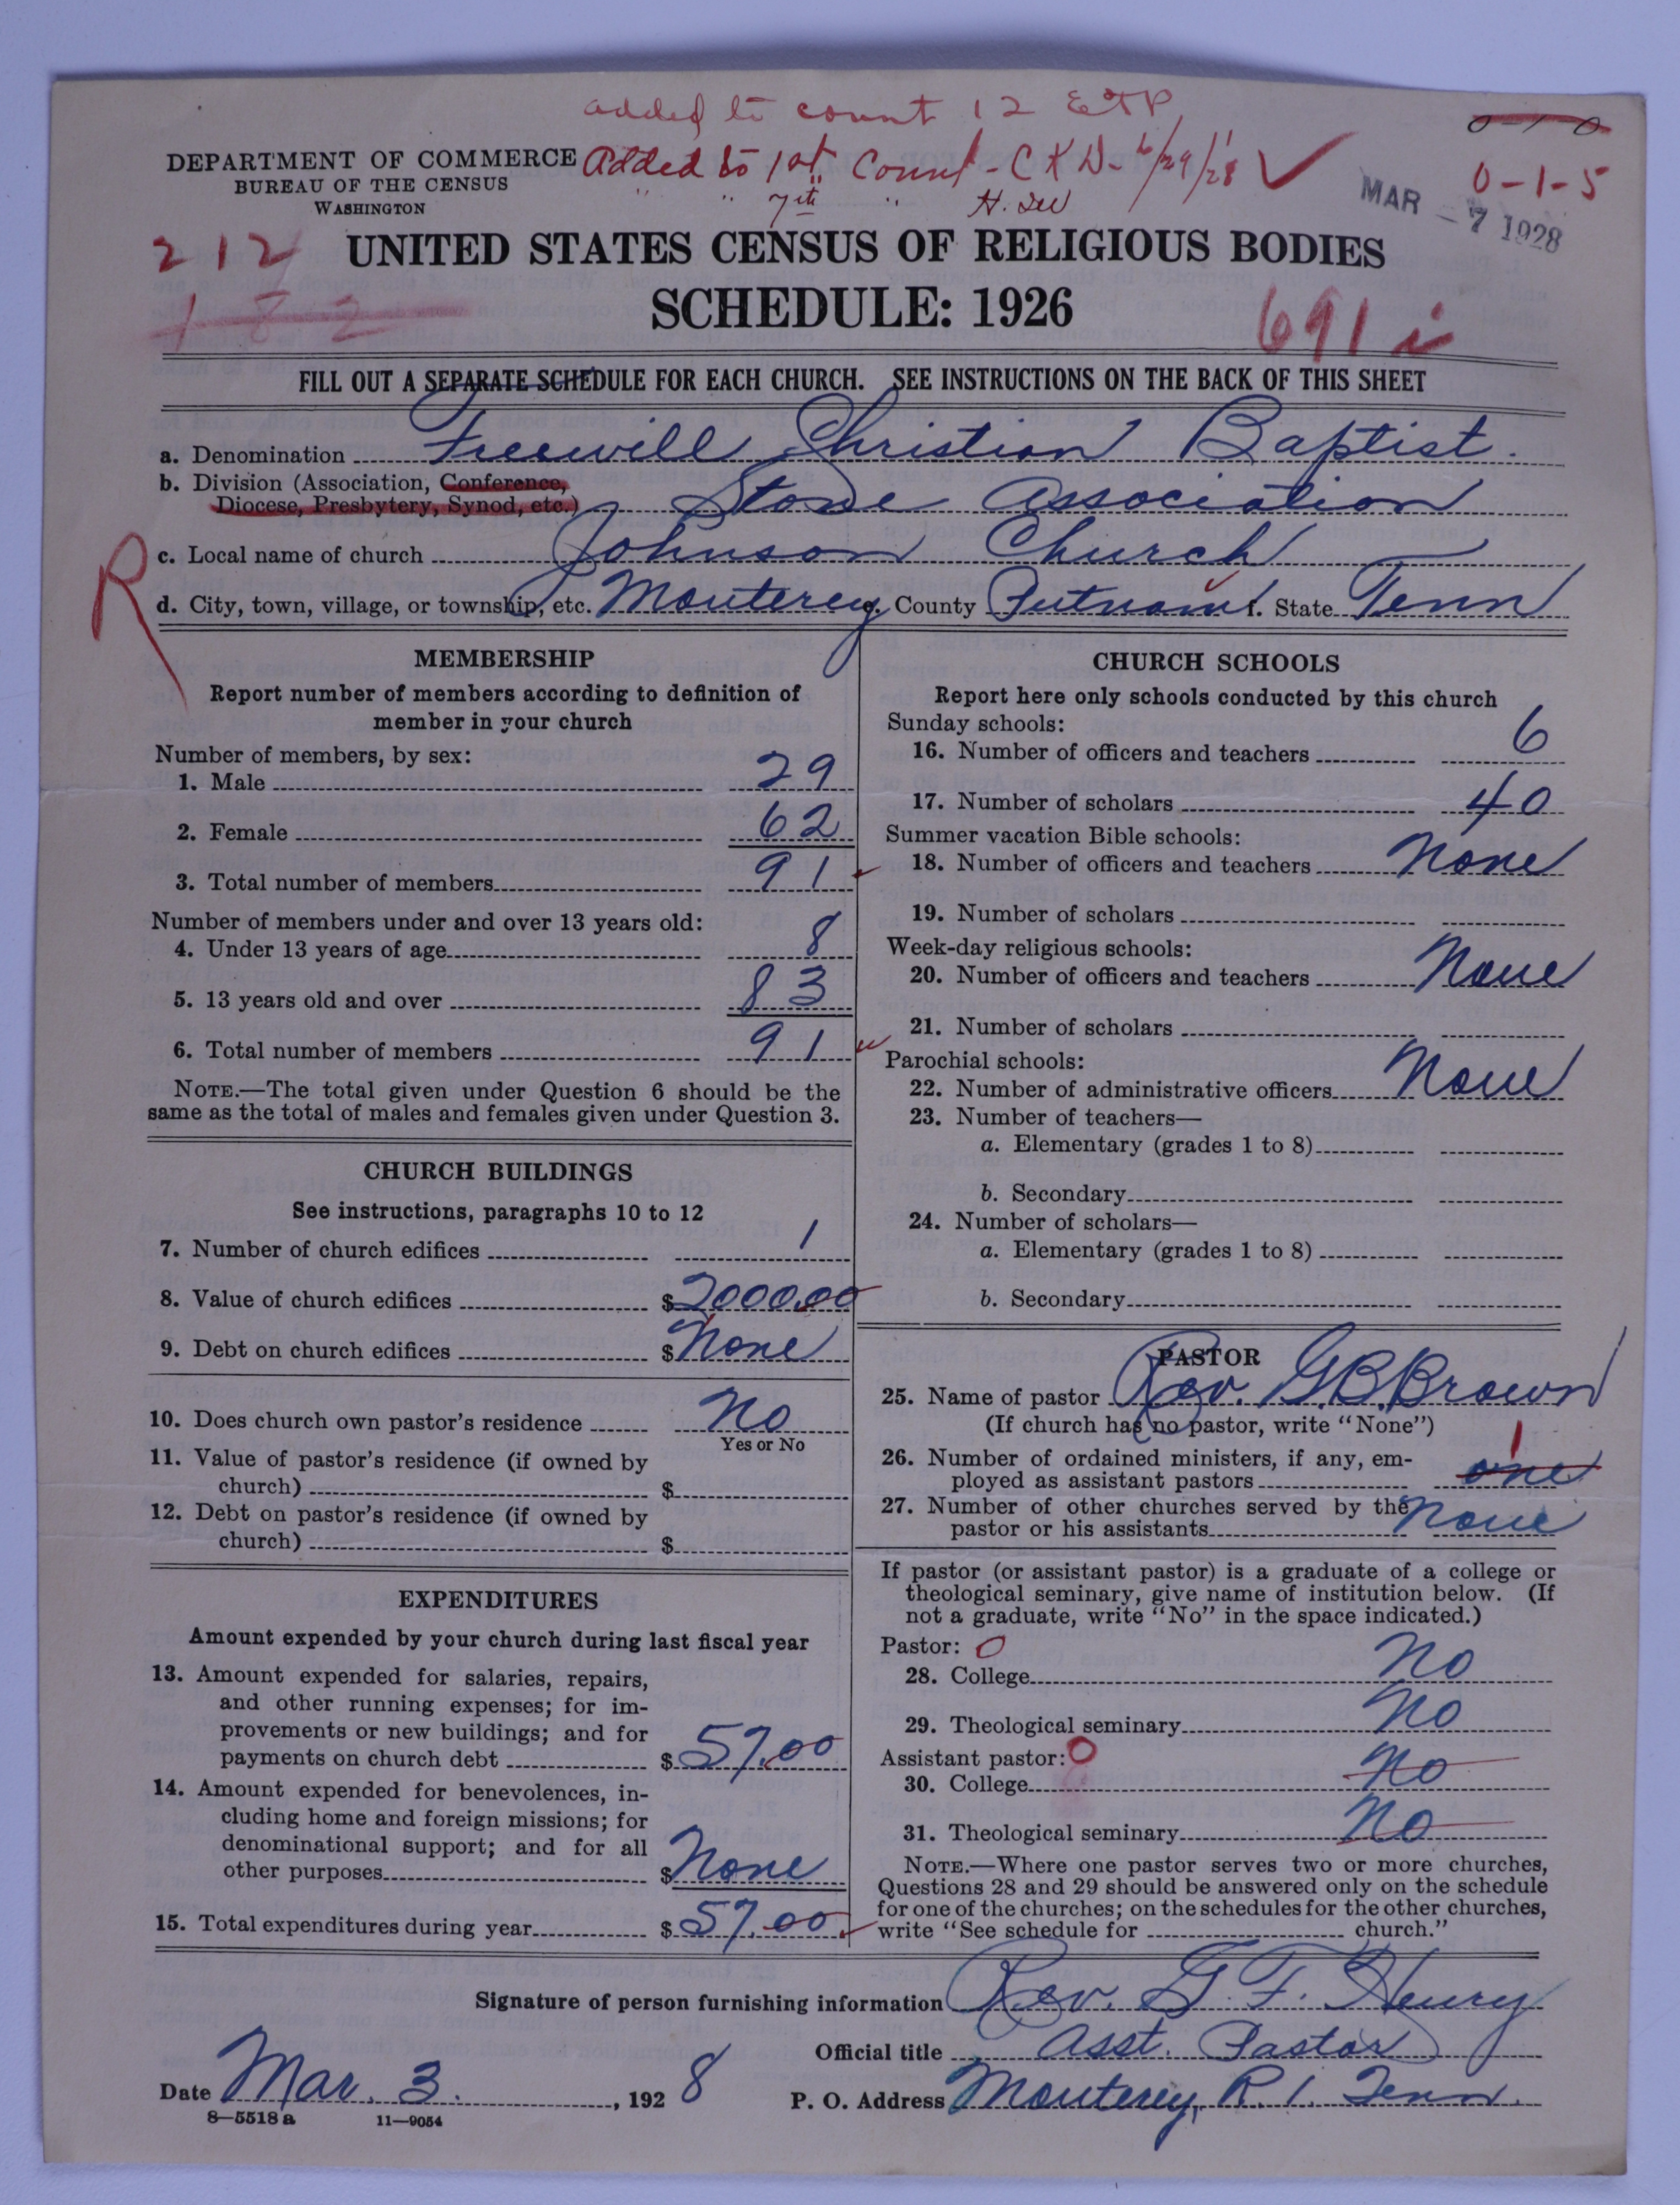 added to count 12 ETP
0-1-0
DEPARTMENT OF COMMERCE
BUREAU OF THE CENSUS
WASHINGTON
Added to 1st Count - C K D - 6/29/28
" " 7th "
0-1-5
MAR - 7 1928
212
182
UNITED STATES CENSUS OF RELIGIOUS BODIES
SCHEDULE: 1926
691 i
FILL OUT A SEPARATE SCHEDULE FOR EACH CHURCH. SEE INSTRUCTIONS ON THE BACK OF THIS SHEET
a. Denomination Freewill Christian Baptist.
b. Division (Association, Conference,
Diocese, Presbytery, Synod, etc.) Stone Association
R
c. Local name of church Johnson Church
d. City, town, village, or township, etc. Monterey e. County Putnam f. State Tenn
MEMBERSHIP
Report number of members according to definition of
member in your church
Number of members, by sex:
1. Male 29
2. Female 62
3. Total number of members 91
Number of members under and over 13 years old:
4. Under 13 years of age 8
5. 13 years old and over 83
6. Total number of members 91
NOTE.—The total given under Question 6 should be the
same as the total of males and females given under Question 3.
CHURCH BUILDINGS
See instructions, paragraphs 10 to 12
7. Number of church edifices 1
8. Value of church edifices $2000.00
9. Debt on church edifices $None
10. Does church own pastor's residence No
Yes or No
11. Value of pastor's residence (if owned by
church) $
12. Debt on pastor's residence (if owned by
church) $
EXPENDITURES
Amount expended by your church during last fiscal year
13. Amount expended for salaries, repairs,
and other running expenses; for im-
provements or new buildings; and for
payments on church debt $57.00
14. Amount expended for benevolences, in-
cluding home and foreign missions; for
denominational support; and for all
other purposes $None
15. Total expenditures during year $57.00
CHURCH SCHOOLS
Report here only schools conducted by this church
Sunday schools:
16. Number of officers and teachers 6
17. Number of scholars 40
Summer vacation Bible schools:
18. Number of officers and teachers None
19. Number of scholars
Week-day religious schools:
20. Number of officers and teachers None
21. Number of scholars
Parochial schools:
22. Number of administrative officers None
23. Number of teachers—
a. Elementary (grades 1 to 8)
b. Secondary
24. Number of scholars—
a. Elementary (grades 1 to 8)
b. Secondary
PASTOR
25. Name of pastor Rev. G.B. Brown
(If church has no pastor, write "None")
26. Number of ordained ministers, if any, em-
ployed as assistant pastors one 1
27. Number of other churches served by the
pastor or his assistants None
If pastor (or assistant pastor) is a graduate of a college or
theological seminary, give name of institution below. (If
not a graduate, write "No" in the space indicated.)
Pastor: 0
28. College No
29. Theological seminary No
Assistant pastor: 0
30. College No
31. Theological seminary No
NOTE.—Where one pastor serves two or more churches,
Questions 28 and 29 should be answered only on the schedule
for one of the churches; on the schedules for the other churches,
write "See schedule for church."
Signature of person furnishing information Rev. G. F. Henry
Official title Asst. Pastor
Date Mar. 3. , 1928
P. O. Address Monterey, R. 1. Tenn.
8—5518 a 11—9054